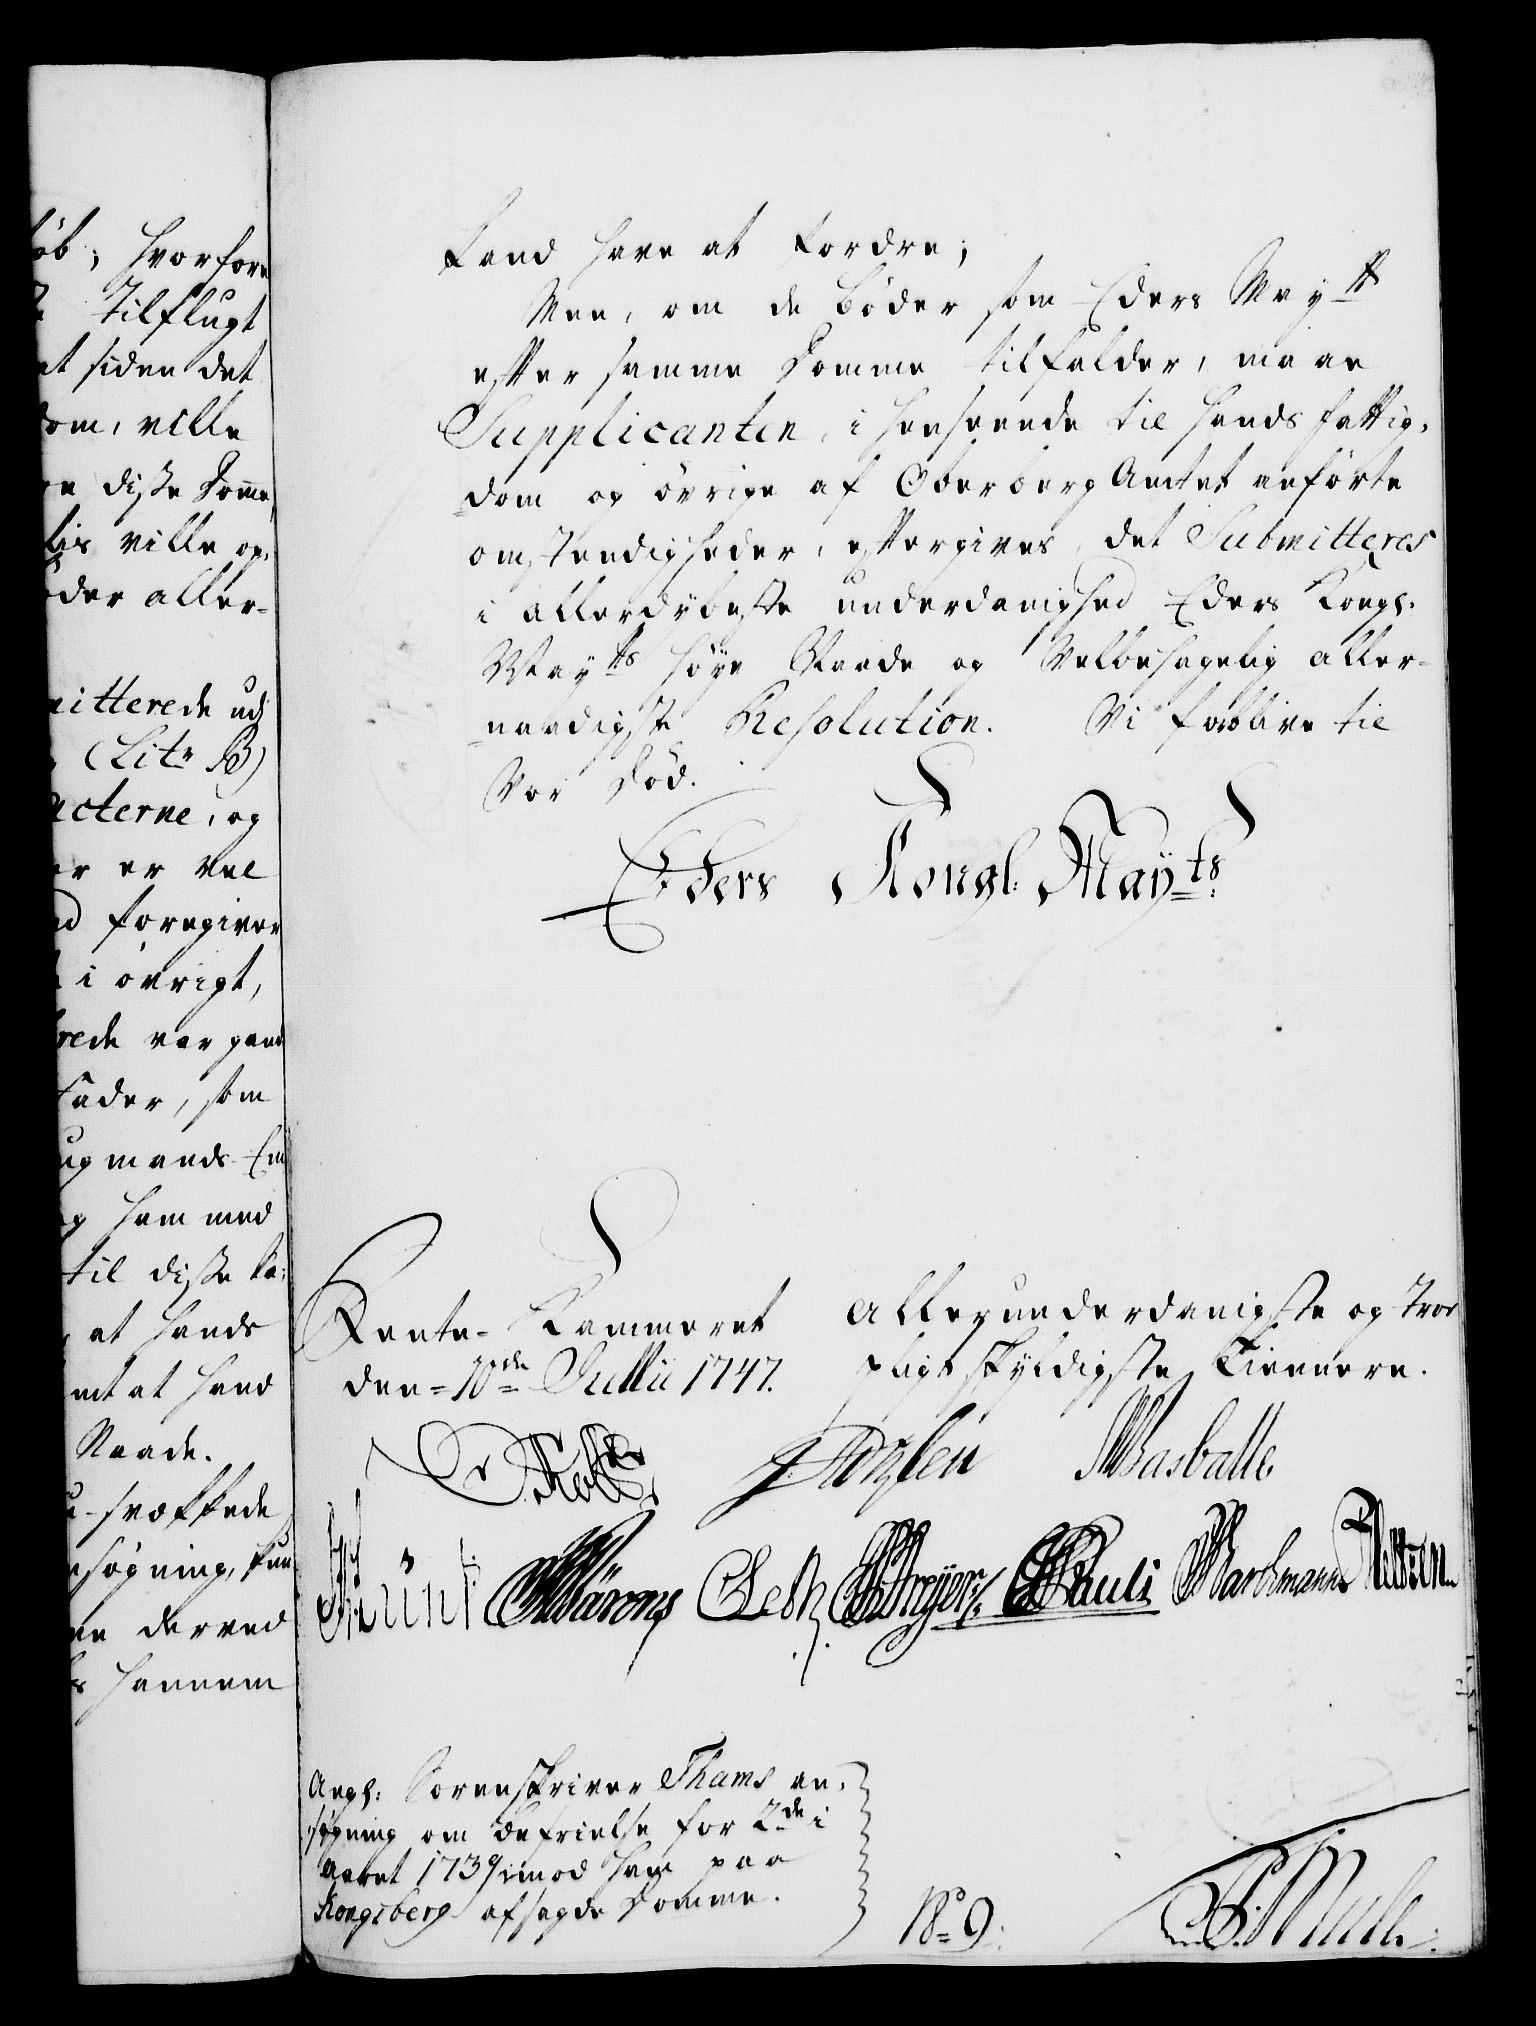 øb; hvorfore
Tilflugt
at siden det
dom, ville
disse Domme,
lis ville op-
der aller-
mitterede ud
(Litr B)
acterne, og
er vel
foregiver
i øvrigt,
rede var gand
fader, som
ugmands Em
og ham med
til disse Sa-
at hands
mt at hand
Naade.
svækkede
søgning, kun
derved
hannem
kand have at fordre;
Men, om de bøder som Eders Mayst
efter samme Domme tilfalder, maae
Supplicanten, i henseende til hands fattig-
dom og øvrige af OberbergAmtet anførte
omstendigheder, eftergives, det Submitteres
i allerdybeste underdanighed Eders Kongl.
Mayts høye Naade og Velbehagelig aller-
naadigste Resolution. Vi forblive til
Vor død.
Eders Kongl: Mayts
Rente-Kammeret
den 10de Julii 1747.
allerunderdanigste og troe
pligtskyldigste Tiennere.
Masballe
Pauli
Angl: Sorenskriver Thams an-
søgning om befrielse for 2de i
aaret 1739 imod ham paa
Kongsberg afsagde Domme.
No 9.